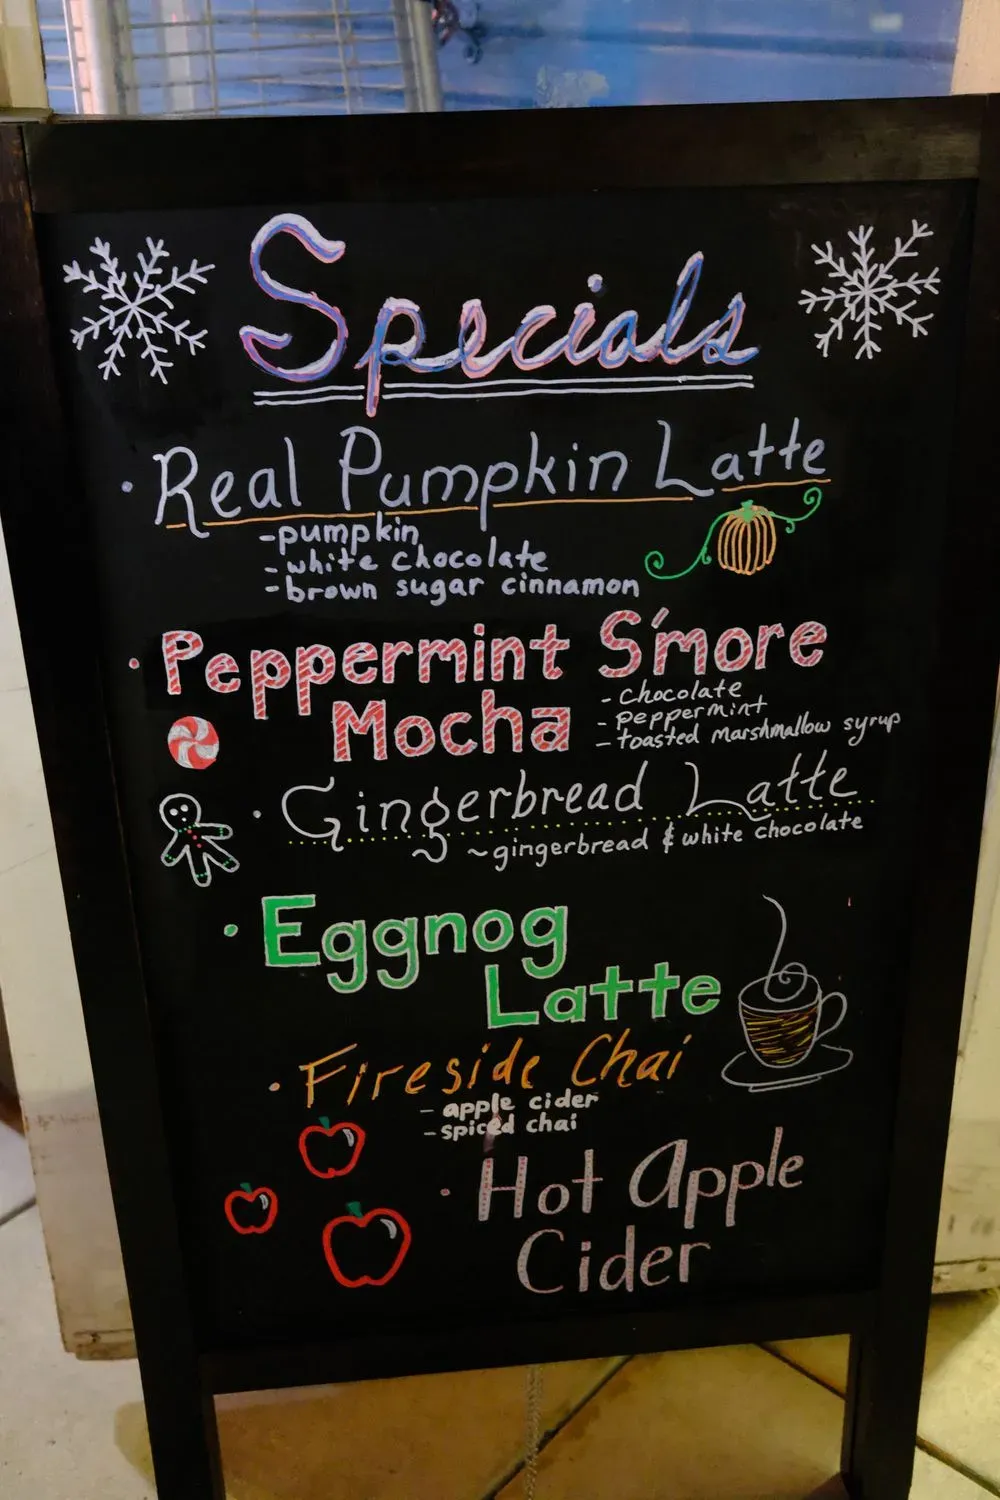 Specials
· Real Pumpkin Latte
-pumpkin
-white chocolate
-brown sugar cinnamon
· Peppermint S'more
Mocha
- chocolate
- peppermint
- toasted marshmallow syrup
· Gingerbread Latte
~gingerbread & white chocolate
· Eggnog
Latte
· Fireside Chai
- apple cider
-spiced chai
· Hot Apple
Cider